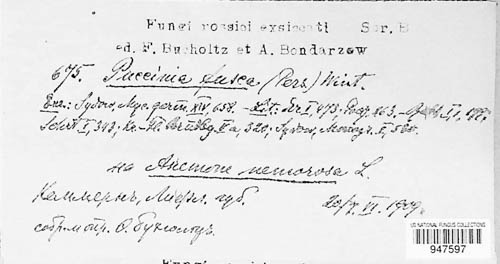 Fungi rossici exsiccati Ser. B
ed. F. Bucholtz et A. Bondarzew
675. Puccinia fusca (Pers.) Wint.
Exs.: Sydow, Myc. germ. XIV, 658. - Lit:
Schrt I, 343; V a, 320; Sydow, Monogr. I, 530.
на Anemone nemorosa L.
Каммернъ, Лифл. губ.
20/7. VI. 1909.
собр. и опр. Ѳ. Бухгольцъ.
US NATIONAL FUNGUS COLLECTIONS
947597